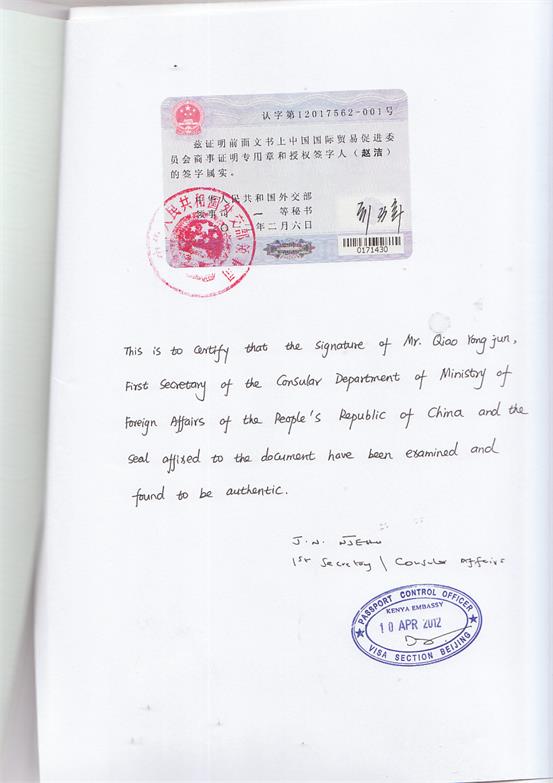 认字第12017562-001号
兹证明前面文书上中国国际贸易促进委
员会商事证明专用章和授权签字人（赵洁）
的签字属实。
中华人民共和国外交部
领事司 一 等秘书
年二月六日
0171430
This is to certify that the signature of Mr. Qiao Yong jun,
First Secretary of the Consular Department of Ministry of
Foreign Affairs of the People's Republic of China and the
seal affixed to the document have been examined and
found to be authentic.
J. N. NJERU
1st Secretary / Consular Affairs
PASSPORT CONTROL OFFICER
KENYA EMBASSY
10 APR 2012
VISA SECTION BEIJING